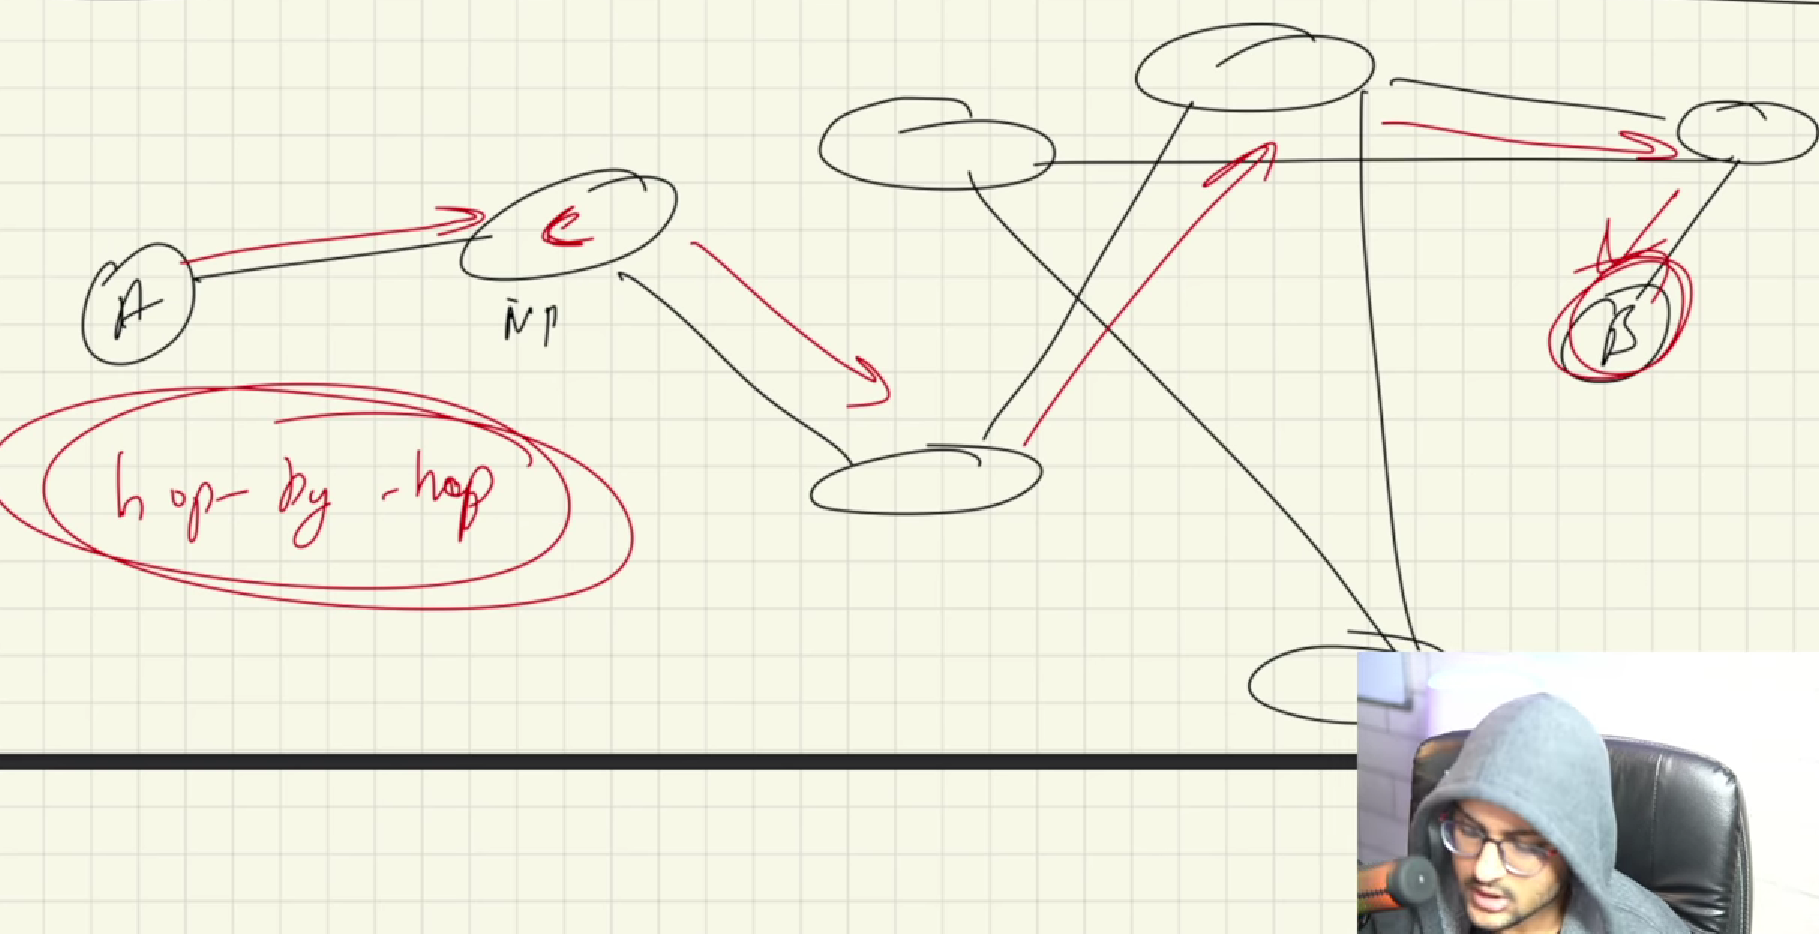 A
C
N1
B
hop-by-hop